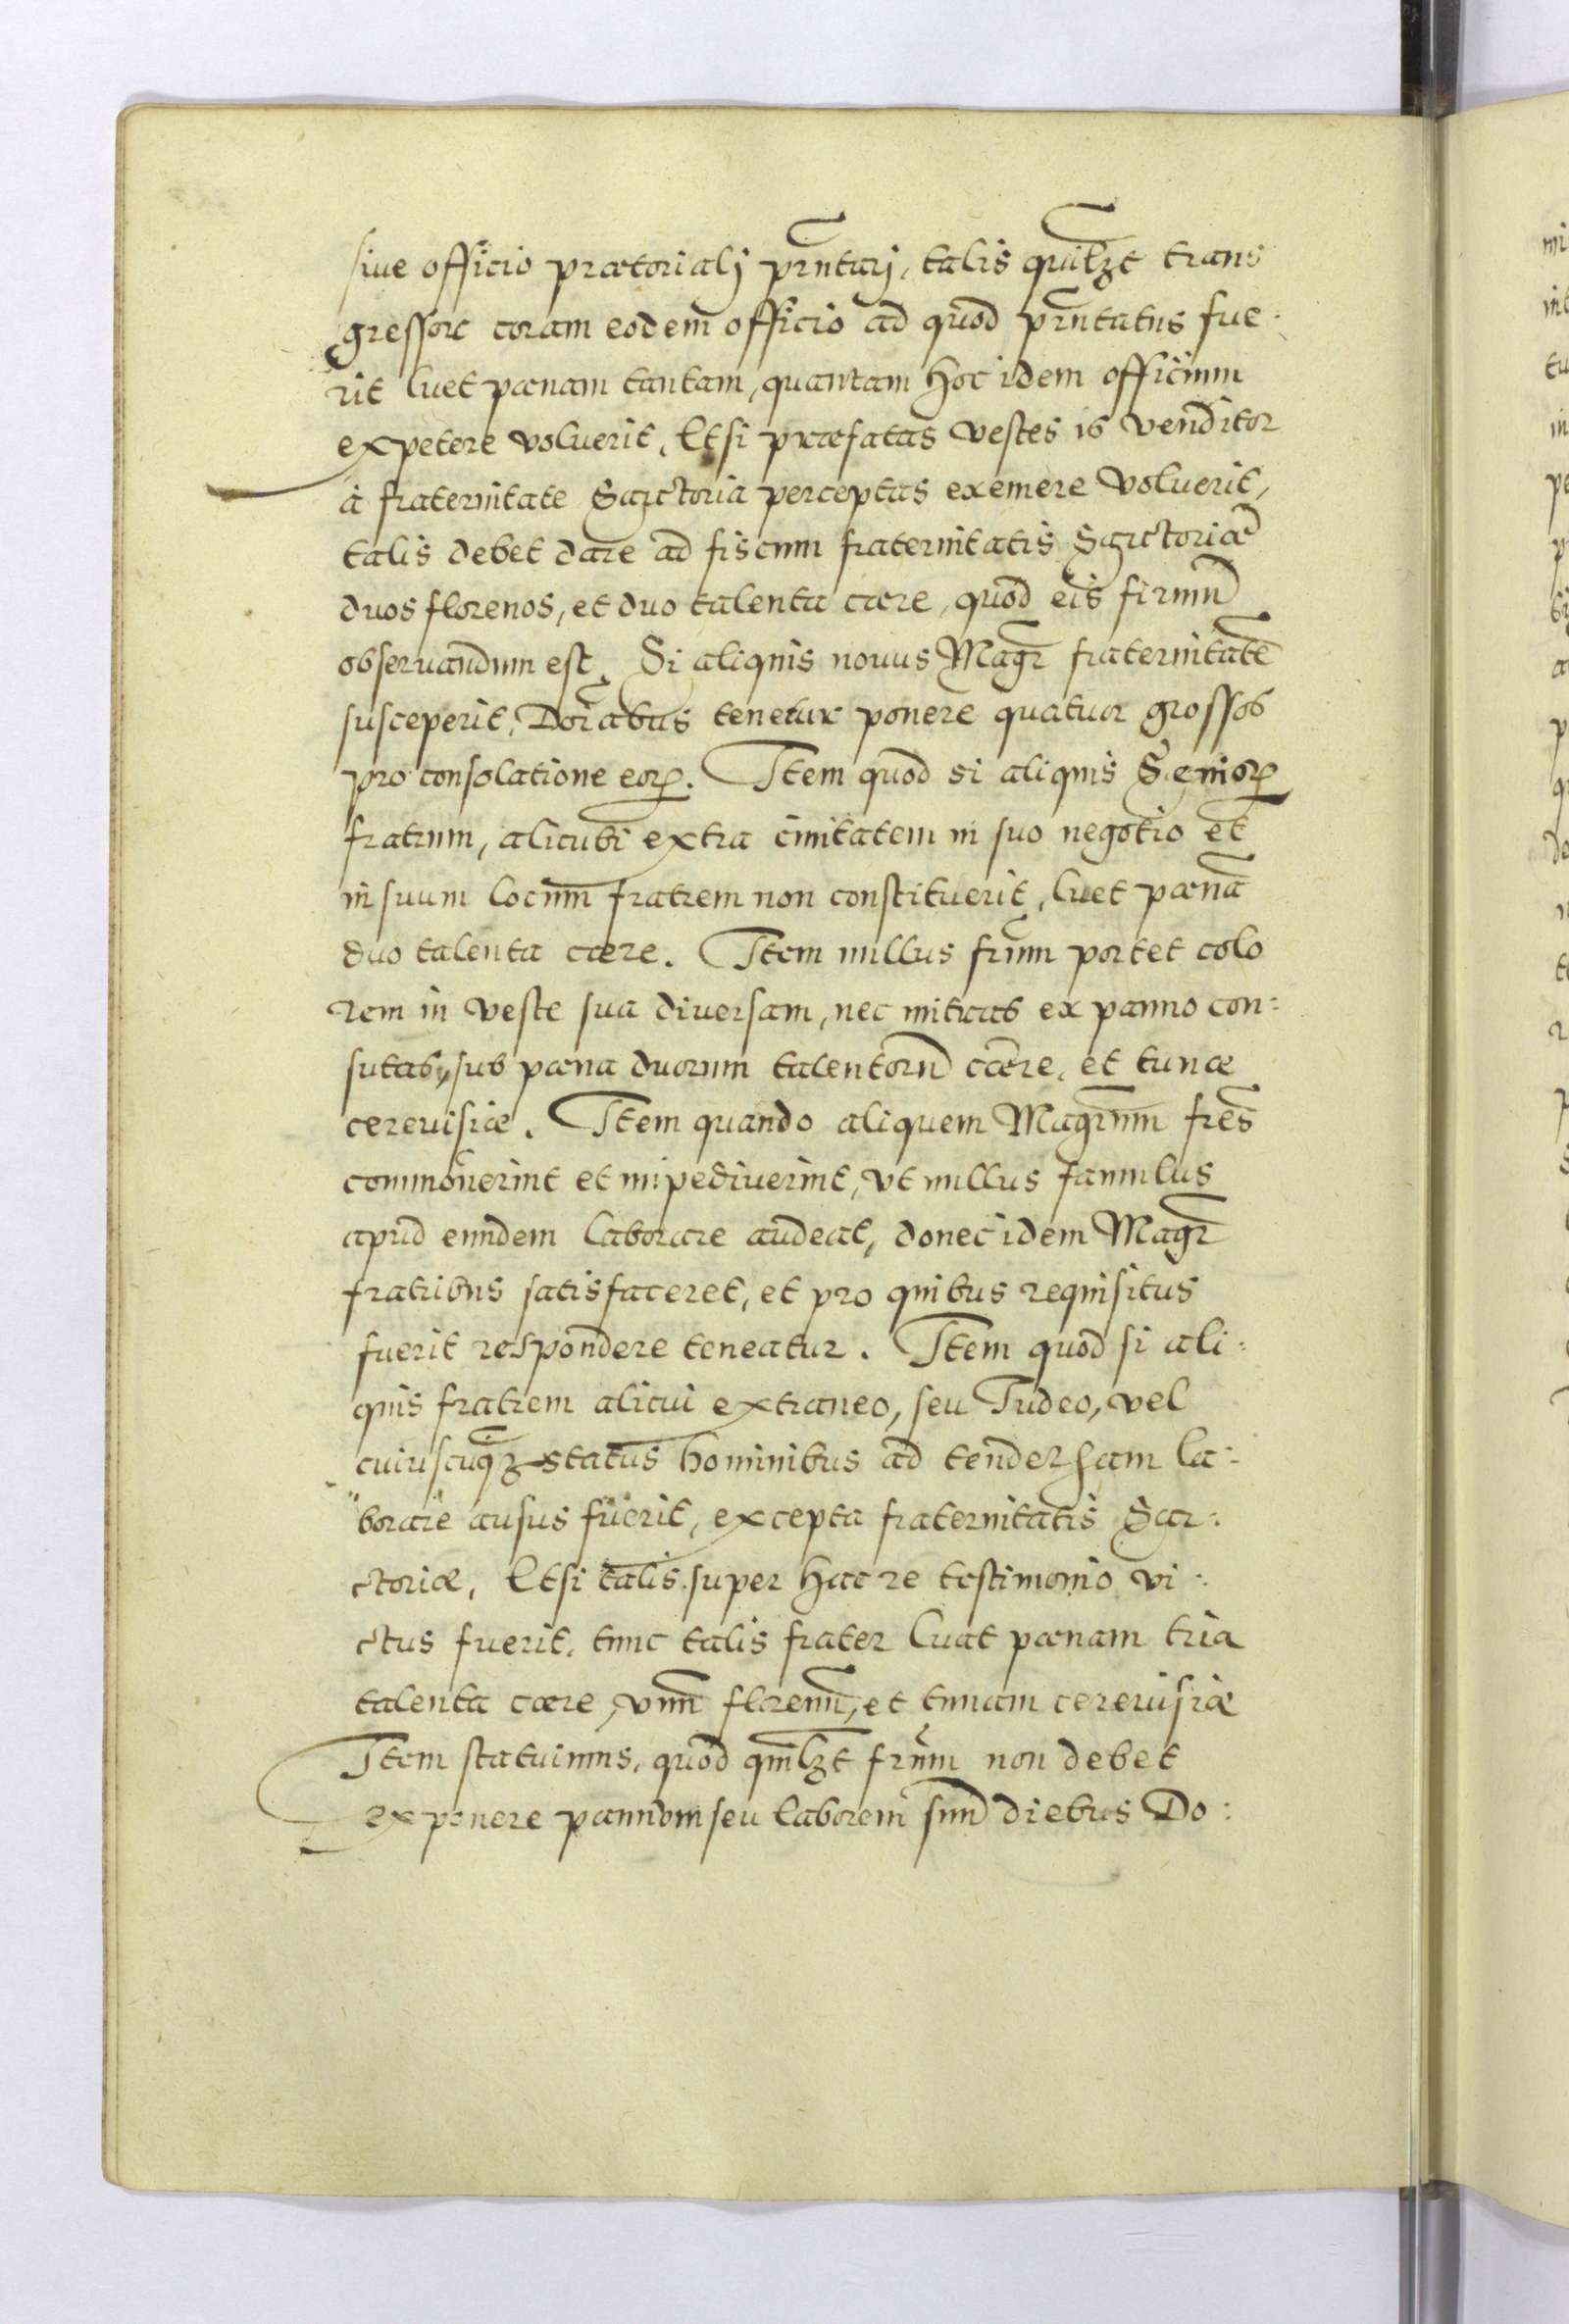 siue officio prætorialj prñtarj, talis quilꝫt trans
gressor coram eodem officio ad quod prñtatus fue:
rit luet pœnam tantam, quantam hoc idem officium
expetere voluerit, Et si præfatas vestes is venditor
à fraternitate Sarctoria perceptas exemere voluerit,
talis debet dare ad fiscum fraternitatis Sarctoriæ
duos florenos, et duo talenta cære, quod eis firmũ
obseruandum est. Si aliquis nouus Magr̃ fraternitatẽ
susceperit, tenetur ponere quatuor grossos
pro consolatione eoꝝ. Item quod si aliquis Senioꝝ
fratrum, alicubi extra ciuitatem in suo negotio et
in suum locum fratrem non constituerit, luet pœnã
duo talenta cære. Item nullus frũm portet colo
rem in veste sua diuersam, nec mitras ex panno con:
sutas, sub pœna duorum talentorũ cære, et tunæ
cereuisiæ. Item quando aliquem Magrũm frẽs
commouerint et impediuerint, vt nullus famulus
apud eundem laborare audeat, donec idem Magr̃
fratribus satisfaceret, et pro quibus requisitus
fuerit respondere teneatur. Item quod si ali:
quis fratrem alicui extraneo, seu Iudeo, vel
cuiuscuqꝫ status hominibus ad tenderham la:
borare ausus fuerit, excepta fraternitatis Sar:
ctoriæ, Et si talis super hac re testimonio vi:
ctus fuerit, tunc talis frater luat pœnam tria
talenta cære, vnũ florenũ, et tunam cereuisiæ
Item statuimus, quod quilꝫt frũm non debet
exponere pannum seu laborem suũ diebus Do: